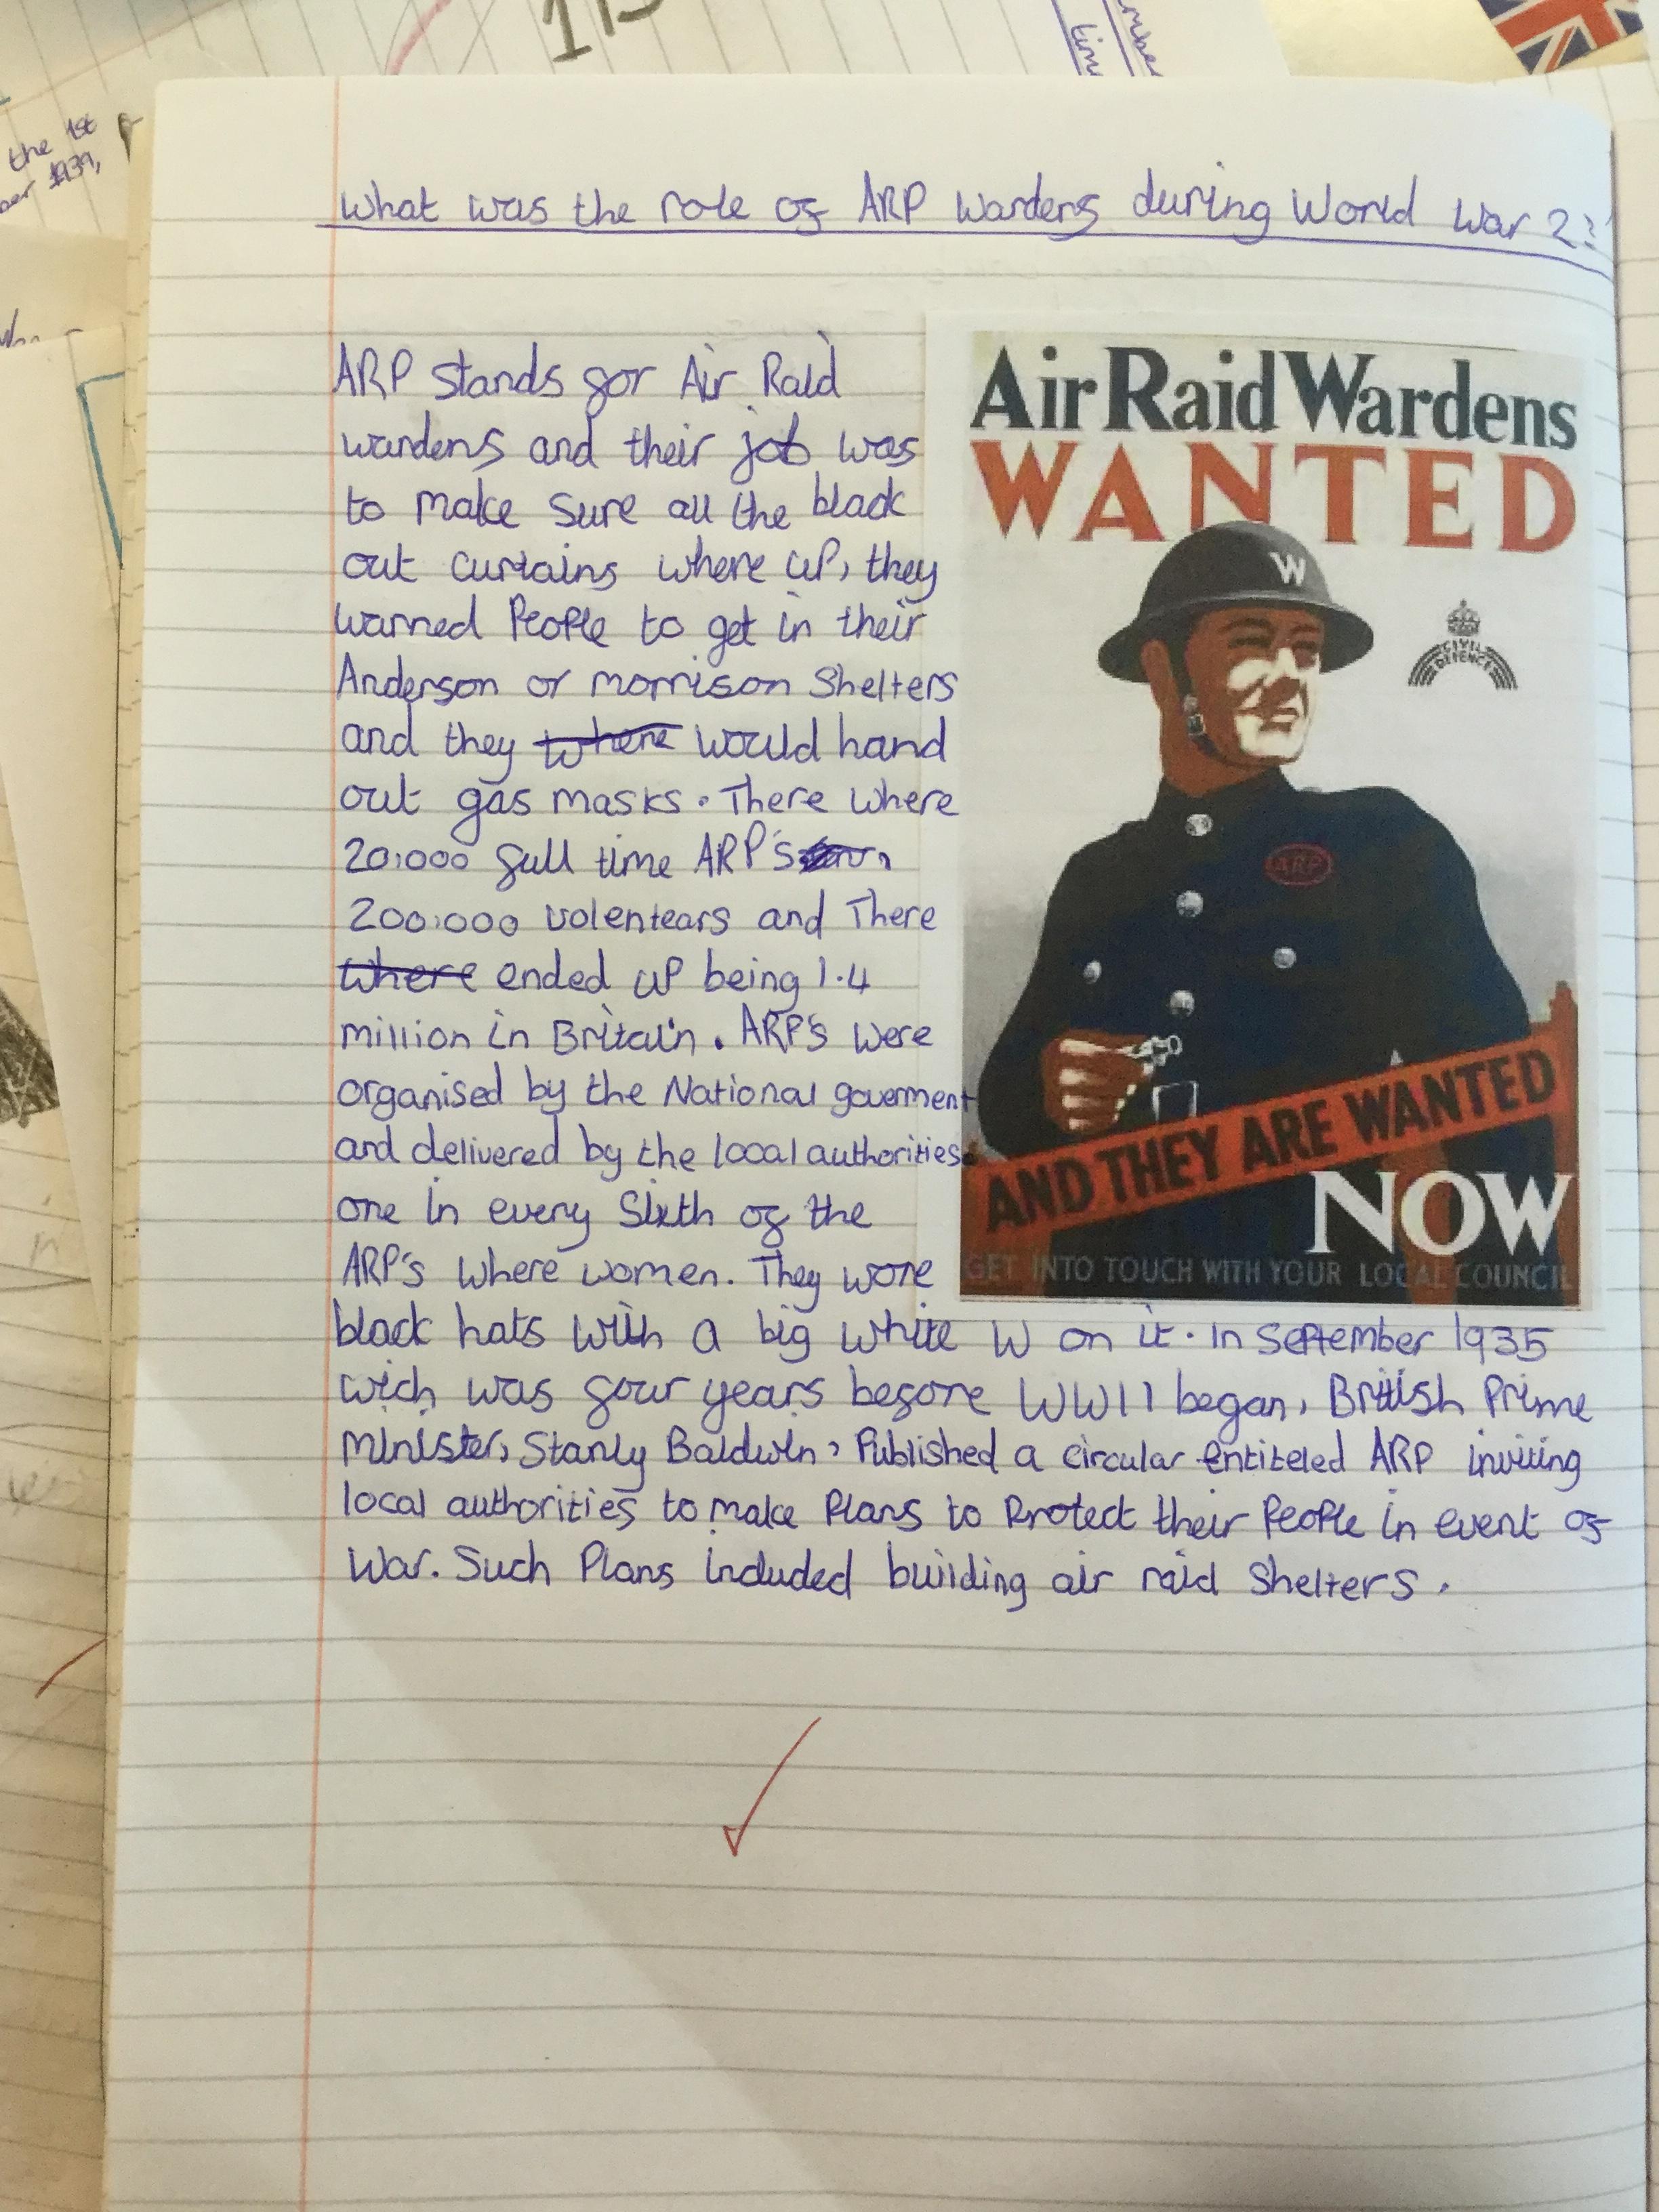 the 1st
1939,
What was the role of ARP Wardens during World War 2?
ARP stands for Air Raid
wardens and their job was
to make sure all the black
out curtains where up, they
warned People to get in their
Anderson or morrison Shelters
and they where would hand
out gas masks. There where
20,000 full time ARP's
200,000 volentears and There
where ended up being 1.4
million in Britain. ARP's were
organised by the National goverment
and delivered by the local authorities.
one in every Sixth of the
ARP's where women. They wore
black hats with a big white W on it. In September 1935
wich was four years before WWII began, British Prime
minister, Stanly Baldwin, Published a circular entiteled ARP inviting
local authorities to make Plans to Protect their People in event of
War. Such Plans included building air raid Shelters.
Air Raid Wardens
WANTED
W
CIVIL
DEFENCE
ARP
AND THEY ARE WANTED
NOW
GET INTO TOUCH WITH YOUR LOCAL COUNCIL